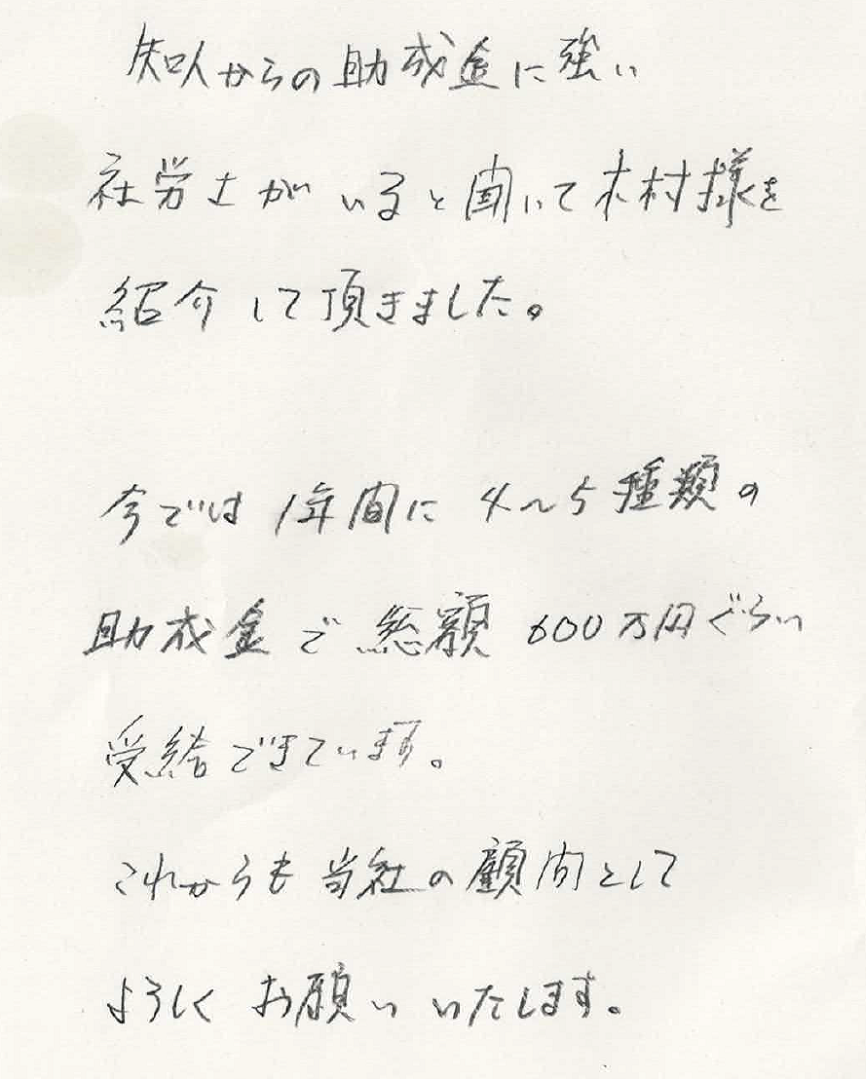 知人からの助成金に強い
社労士がいると聞いて木村様を
紹介して頂きました。
今では1年間に4～5種類の
助成金で総額600万円ぐらい
受給できています。
これからも当社の顧問として
よろしくお願いいたします。